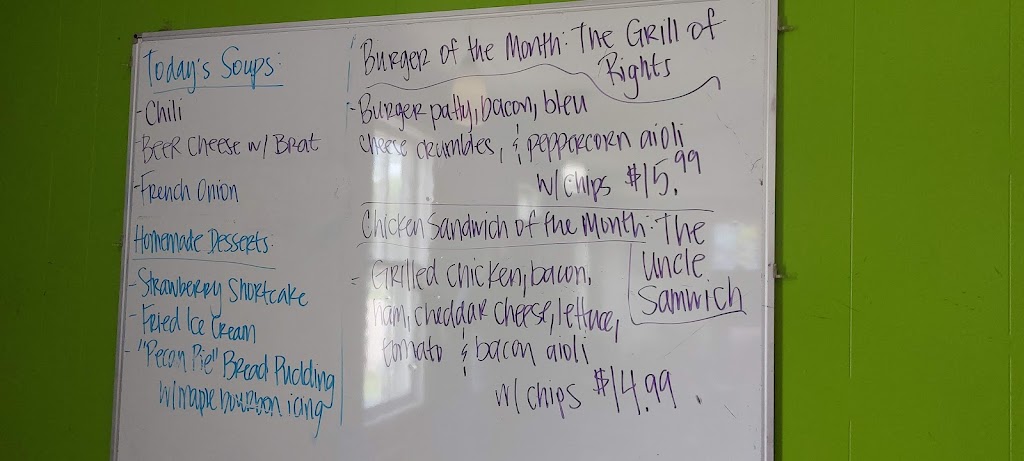 Today's Soups:
- Chili
- Beer Cheese w/ Brat
- French Onion
Homemade Desserts:
- Strawberry Shortcake
- Fried Ice Cream
- "Pecan Pie" Bread Pudding
w/ maple bourbon icing
Burger of the Month: The Grill of
Rights
- Burger patty, bacon, bleu
cheese crumbles, & peppercorn aioli
w/ chips $15.99
Chicken Sandwich of the Month: The
Uncle
Samwich
- Grilled chicken, bacon,
ham, cheddar cheese, lettuce,
tomato & bacon aioli
w/ chips $14.99